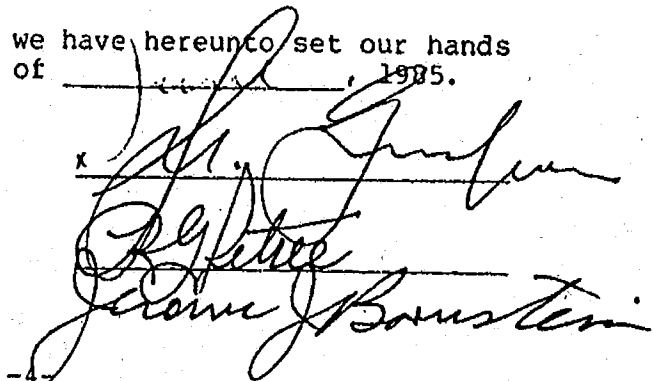 we have hereunto set our hands
of , 1985.
x
R G Petree
Jerome J Bornstein
-4-